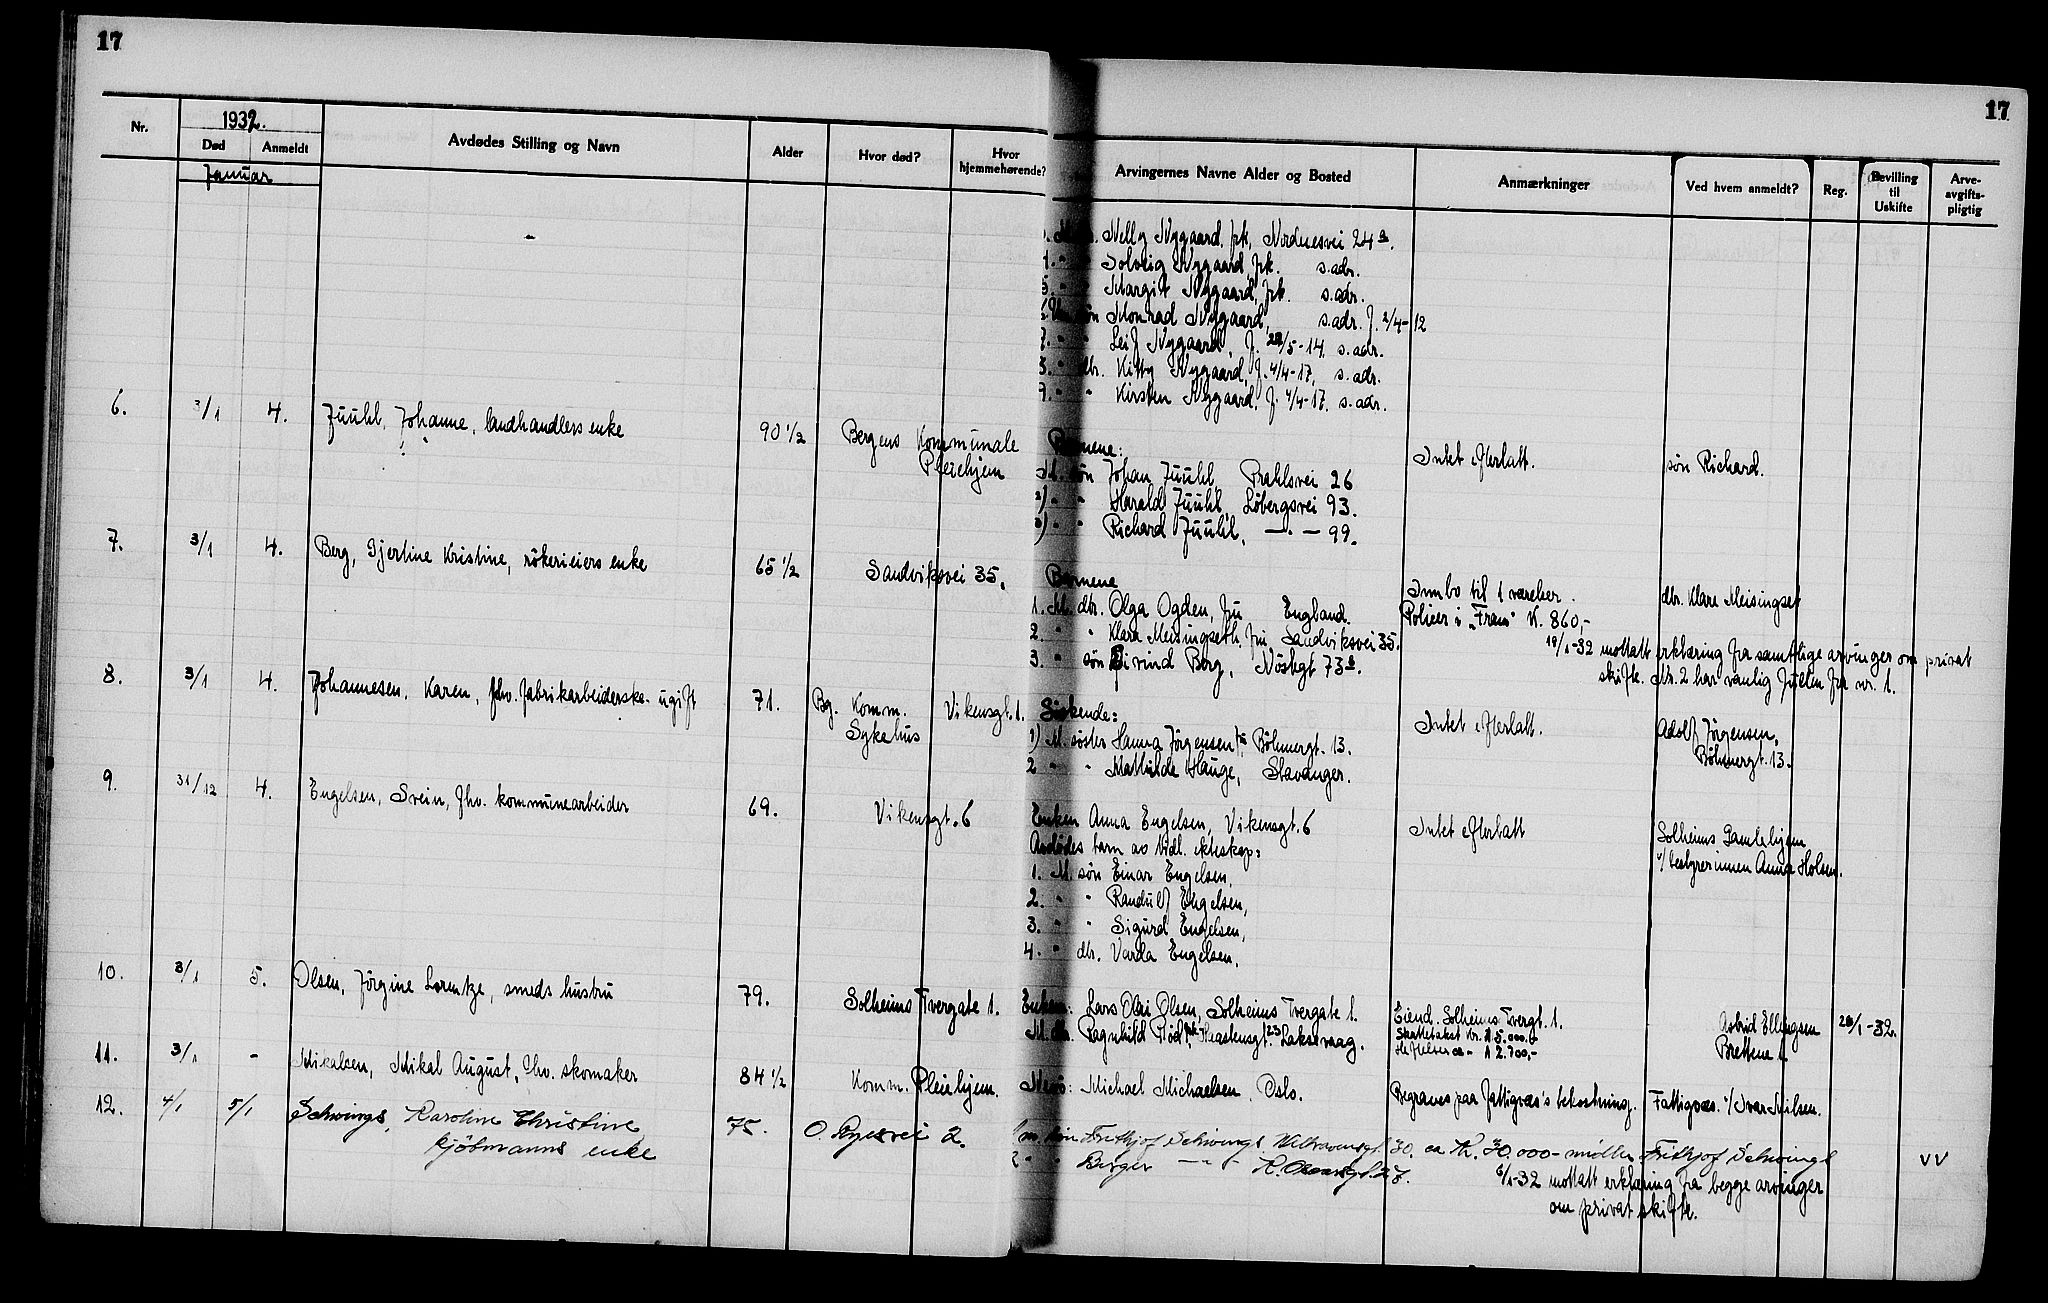 17
17
Nr.
1932.
Død
Anmeldt
Januar
Avdødes Stilling og Navn
Alder
Hvor død?
Hvor hjemmehørende?
Arvingernes Navne Alder og Bosted
Anmærkninger
Ved hvem anmeldt?
Reg.
Bevilling til Uskifte
Arve-avgifts-pligtig
Nelly Nygaard, frk, Nordnesvei 24a.
Solveig Nygaard, frk. s. adr.
5. " " Margit Nygaard, frk. s. adr.
søn Monrad Nygaard, s. adr. f. 2/4-12
7. " " Leif Nygaard, f. /5-14. s. adr.
8. " dtr. Kitty Nygaard, f. 4/4-17, s. adr.
9. " " Kirsten Nygaard, f. 4/4-17. s. adr.
6. 3/1 4. Juuhl, Johanne, landhandlers enke 90 1/2 Bergens Kommunale Pleiehjem
Barnene:
M. søn Johan Juuhl, Prahlsvei 26
2) " " Harald Juuhl, Løbergsvei 93.
3) " " Richard Juuhl, — " — 99.
Intet efterlatt.
søn Richard.
7. 3/1 4. Berg, Gjertine Kristine, røkerieiers enke 65 1/2 Sandviksvei 35.
Barnene
1. M. dtr. Olga Ogden, fru England.
2. " " Klara Meisingseth, fru Sandviksvei 35.
3. " søn Eivind Berg, Nøstegt 73
Innbo til 1 værelser.
Polise i "Fram" K. 860,-
dtr. Klara Meisingset
/1-32 mottatt erklæring fra samtlige arvinger om privat
skifte. Nr. 2 har vanlig fullm fra nr. 1.
8. 3/1 4. Johannesen, Karen, fhv. fabrikarbeiderske - ugift 71. Bg. Komm. Sykehus Vikensgt. 1.
Søskende:
1) M. søster Hanna Jørgensen, fru Bøhmergt. 13.
2 " " Mathilde Hauge, Stavanger.
Intet efterlatt.
Adolf Jørgensen,
Bøhmergt. 13.
9. 31/12 4. Engelsen, Svein, fhv. kommunearbeider 69. Vikensgt. 6
Enken Anna Engelsen, Vikensgt. 6
Avdødes barn av tidl. ekteskap:
1. M. søn Einar Engelsen,
2. " " Randulf Engelsen,
3. " " Sigurd Engelsen,
4. " dtr. Varda Engelsen.
Intet efterlatt
Solheims Gamlehjem
v/ bestyrerinnen Anna Holsen.
10. 3/1 5. Olsen, Jørgine Lorentze, smeds hustru 79. Solheims Tvergate 1.
Enkem: Lars Olai Olsen, Solheims Tvergate 1.
M. dtr. Ragnhild 23 Laksevaag.
Eiend. Solheims Tvergt. 1.
Skattetakst Kr. 15.000,-
Heftelser ca - 12.700,-
Astrid Ellingsen
/1-32.
11. 3/1 - Mikalsen, Mikal August, fhv. skomaker 84 1/2 Komm. Pleiehjem.
Nevø: Michael Michaelsen, Oslo.
Begraves paa fattigvæs's bekostning.
Fattigvæs. v/ Ivar Nilsen.
12. 4/1 5/1 Schwings, Karoline Christine
kjøbmanns enke
75. O. Ryesvei 2.
1 m. søn Frithjof Schwings 30. ca Kr. 30.000- midler Frithjof Schwings
2 " " Birger — " —
VV
6/1-32 mottatt erklæring fra begge arvinger
om privat skifte.